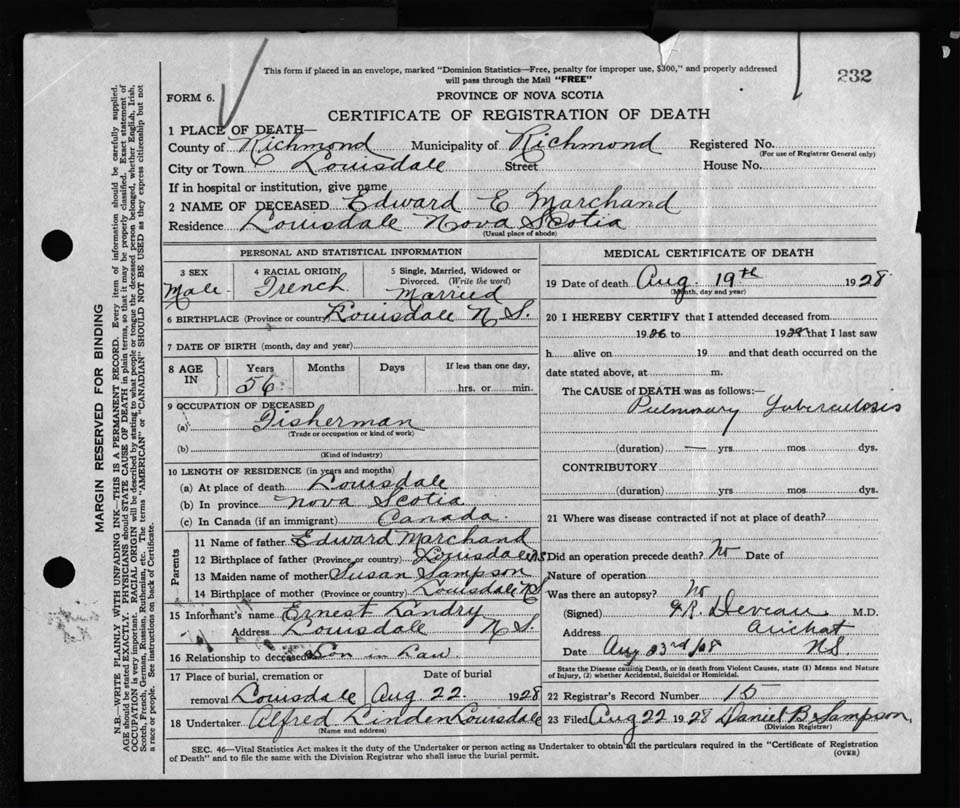 This form if placed in an envelope, marked "Dominion Statistics—Free, penalty for improper use, $300," and properly addressed
will pass through the Mail "FREE"
232
FORM 6.
PROVINCE OF NOVA SCOTIA
CERTIFICATE OF REGISTRATION OF DEATH
1 PLACE OF DEATH—
County of Richmond Municipality of Richmond Registered No.
(For use of Registrar General only)
City or Town Louisdale Street House No.
If in hospital or institution, give name
2 NAME OF DECEASED Edward E Marchand
Residence Louisdale Nova Scotia
(Usual place of abode)
PERSONAL AND STATISTICAL INFORMATION
3 SEX 4 RACIAL ORIGIN 5 Single, Married, Widowed or
Divorced. (Write the word)
Male French Married
6 BIRTHPLACE (Province or country) Louisdale N S.
7 DATE OF BIRTH (month, day and year)
8 AGE Years Months Days If less than one day,
IN 56 hrs. or min.
9 OCCUPATION OF DECEASED
(a) Fisherman
(Trade or occupation or kind of work)
(b)
(Kind of industry)
10 LENGTH OF RESIDENCE (in years and months)
(a) At place of death Louisdale
(b) In province Nova Scotia
(c) In Canada (if an immigrant) Canada
Parents
11 Name of father Edward Marchand
12 Birthplace of father (Province or country) Louisdale NS
13 Maiden name of mother Susan Sampson
14 Birthplace of mother (Province or country) Louisdale NS
15 Informant's name Ernest Landry
Address Louisdale N S.
16 Relationship to deceased Son in Law
17 Place of burial, cremation or Date of burial
removal Louisdale Aug 22. 1928
18 Undertaker Alfred Linden Louisdale
(Name and address)
MEDICAL CERTIFICATE OF DEATH
19 Date of death Aug. 19th 1928
(Month, day and year)
20 I HEREBY CERTIFY that I attended deceased from
1926 to 1928 that I last saw
h alive on 19 and that death occurred on the
date stated above, at m.
The CAUSE of DEATH was as follows:—
Pulmonary Tuberculosis
(duration) — yrs. mos. dys.
CONTRIBUTORY
(duration) yrs mos dys.
21 Where was disease contracted if not at place of death?
Did an operation precede death? No Date of
Nature of operation
Was there an autopsy? No
(Signed) Deveau M.D.
Address Arichat
Date Aug 23rd/28 NS.
State the Disease causing Death, or in death from Violent Causes, state (1) Means and Nature
of Injury, (2) whether Accidental, Suicidal or Homicidal.
22 Registrar's Record Number 15
23 Filed Aug 22 1928 Daniel B Sampson,
(Division Registrar)
SEC. 46—Vital Statistics Act makes it the duty of the Undertaker or person acting as Undertaker to obtain all the particulars required in the "Certificate of Registration
of Death" and to file the same with the Division Registrar who shall issue the burial permit. (OVER)
MARGIN RESERVED FOR BINDING
N.B.—WRITE PLAINLY WITH UNFADING INK—THIS IS A PERMANENT RECORD. Every item of information should be carefully supplied.
AGE should be stated EXACTLY. PHYSICIANS should STATE CAUSE OF DEATH in plain terms, so that it may be properly classified. Exact statement of
OCCUPATION is very important. RACIAL ORIGIN will be described by stating to what people or tongue the deceased person belonged, whether English, Irish,
Scotch, French, German, Russian, Ruthenian, etc. The terms "AMERICAN" or "CANADIAN" SHOULD NOT BE USED as they express citizenship but not
a race or people. See instructions on back of Certificate.